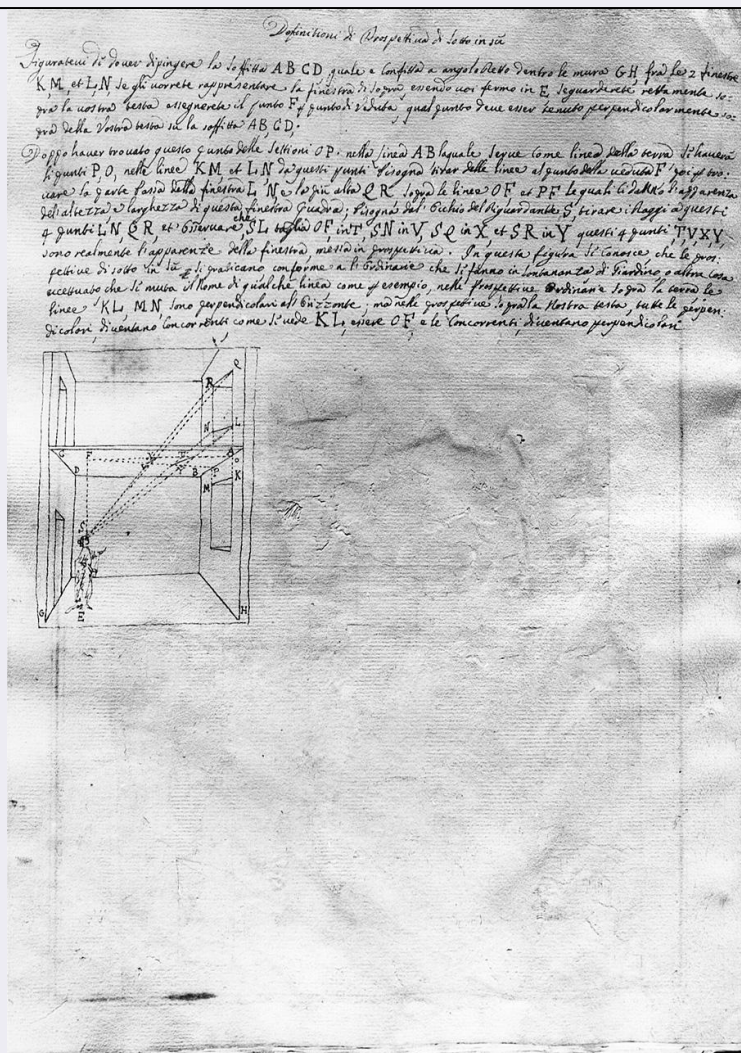 Definitioni di Prospettiva di sotto in sù
Figuratevi di dover dipingere la soffitta ABCD, quale e confitta a angolo Retto dentro le mura GH, frà le 2 finestre
KM, et LN, se gli vorrete rappresentare la finestra di sopra, essendo voi fermo in E, seguarderete rettamente so-
pra la vostra testa assegnerete il punto F, punto di veduta, qual punto deve esser tenuto perpendicolarmente so-
pra della Vostra testa sù la soffitta AB, CD.
Doppo haver trovato questo punto delle Settioni OP. nella linea AB laquale serve come linea della terra si haverà
li punti P.O, nelle linee KM et LN da questi punti bisogna tirar delle linee al punto della veduta F tro-
vare la parte bassa della finestra L N e la più alta QR sopra le linee OF et PF le quali li l'apparenza
del altezza e larghezza di questa finestra Quadra; bisogna dal Occhio del Riguardante S, tirare i Raggi a questi
4 punti LN, QR et Osservare che SL taglia OF in T, SN in V, SQ in X et SR in Y questi 4 punti TVXY,
sono realmente l'apparenze della finestra, messa in prospettiva. In questa figura si conosce, che le pros:
pettive di sotto in sù si praticano conforme a l'Ordinarie che si fanno in lontananza di Giardino o altra cosa
eccettuato che si muta il Nome di qualche linea come p esempio, nelle Prospettive Ordinarie sopra la terra le
linee KL, MN, sono perpendicolari all'Orizzonte, mà nelle prospettive sopra la Nostra testa, tutte le perpen:
dicolari, diventano Concorrenti come si vede KL, essere OF e le Concorrenti, diventano perpendicolari
Q
R
N
L
C
F
A
O
D
B
P
K
M
S
G
E
H